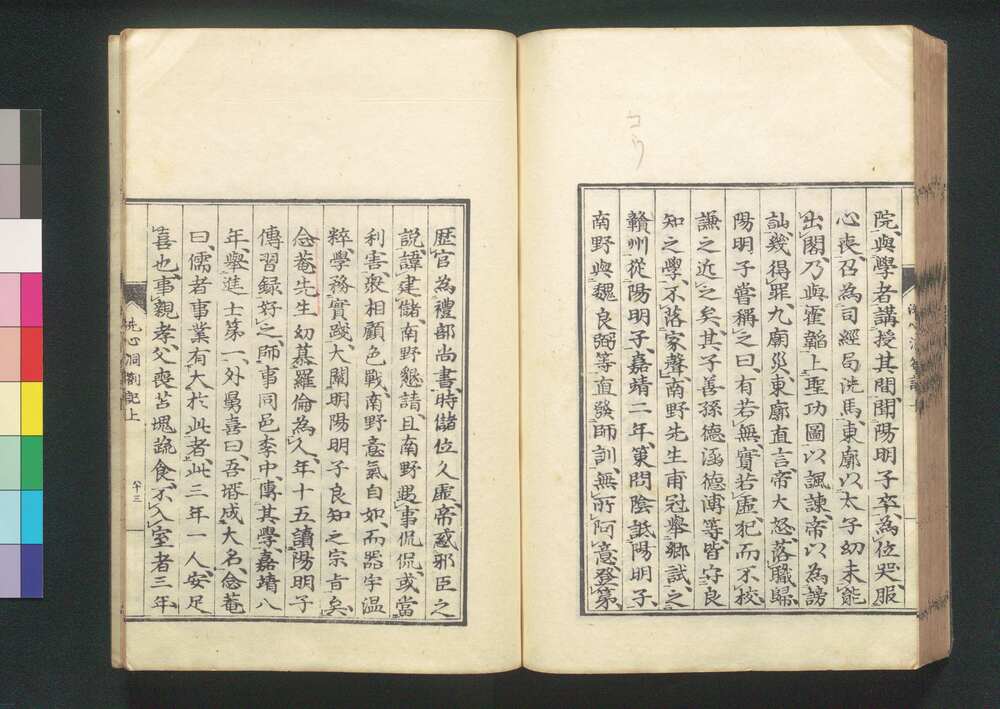 院、與學者講授其間、聞陽明子卒、為位哭、服
心喪、召為司經局洗馬、東廓以太子幼未能
出閣、乃與霍韜上聖功圖以諷諫、帝以為謗
訕、幾得罪、九廟災、東廓直言、帝大怒、落職歸、
陽明子嘗稱之曰、有若無、實若虛、犯而不校、
謙之近之矣、其子善孫德涵德溥等、皆守良
知之學、不落家聲、南野先生甫冠舉鄉試、之
贛州從陽明子、嘉靖二年、策問陰詆陽明子、
南野與魏良弼等直發師訓、無所阿意、登第、
コウ
歷官為禮部尚書、時儲位久虛、帝惑邪臣之
說、諱建儲、南野懇請、且南野遇事侃侃、或當
利害、衆相顧色戰、南野意氣自如、而器宇溫
粹、學務實踐、大闡明陽明子良知之宗旨矣、
念菴先生幼慕羅倫為人、年十五讀陽明子
傳習録好之、師事同邑李中、傳其學、嘉靖八
年、舉進士第一、外舅喜曰、吾壻成大名、念菴
曰、儒者事業有大於此者、此三年一人、安足
喜也、事親孝、父喪苫塊蔬食、不入室者三年、
洗心洞劄記上